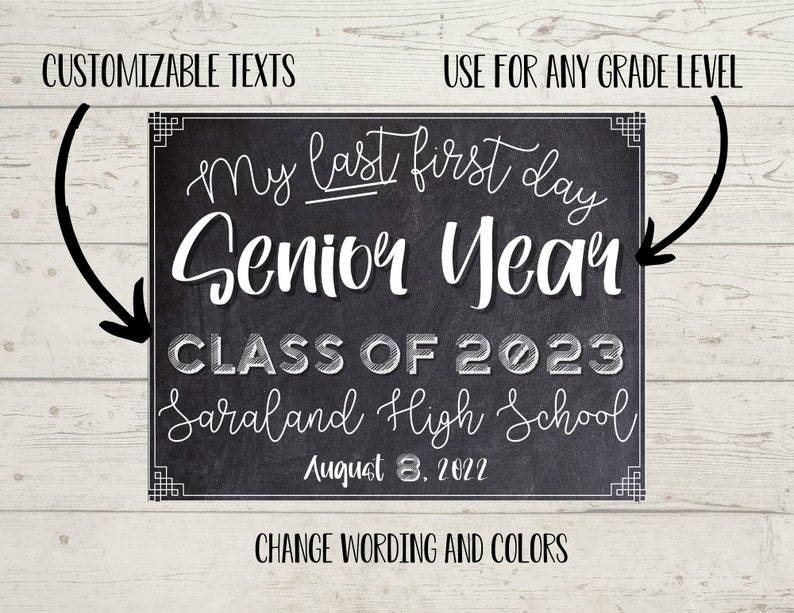 CUSTOMIZABLE TEXTS
USE FOR ANY GRADE LEVEL
My last first day
Senior Year
CLASS OF 2023
Saraland High School
August 8, 2022
CHANGE WORDING AND COLORS